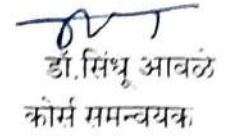 डॉ.सिंधू आवळे
कोर्स समन्वयक